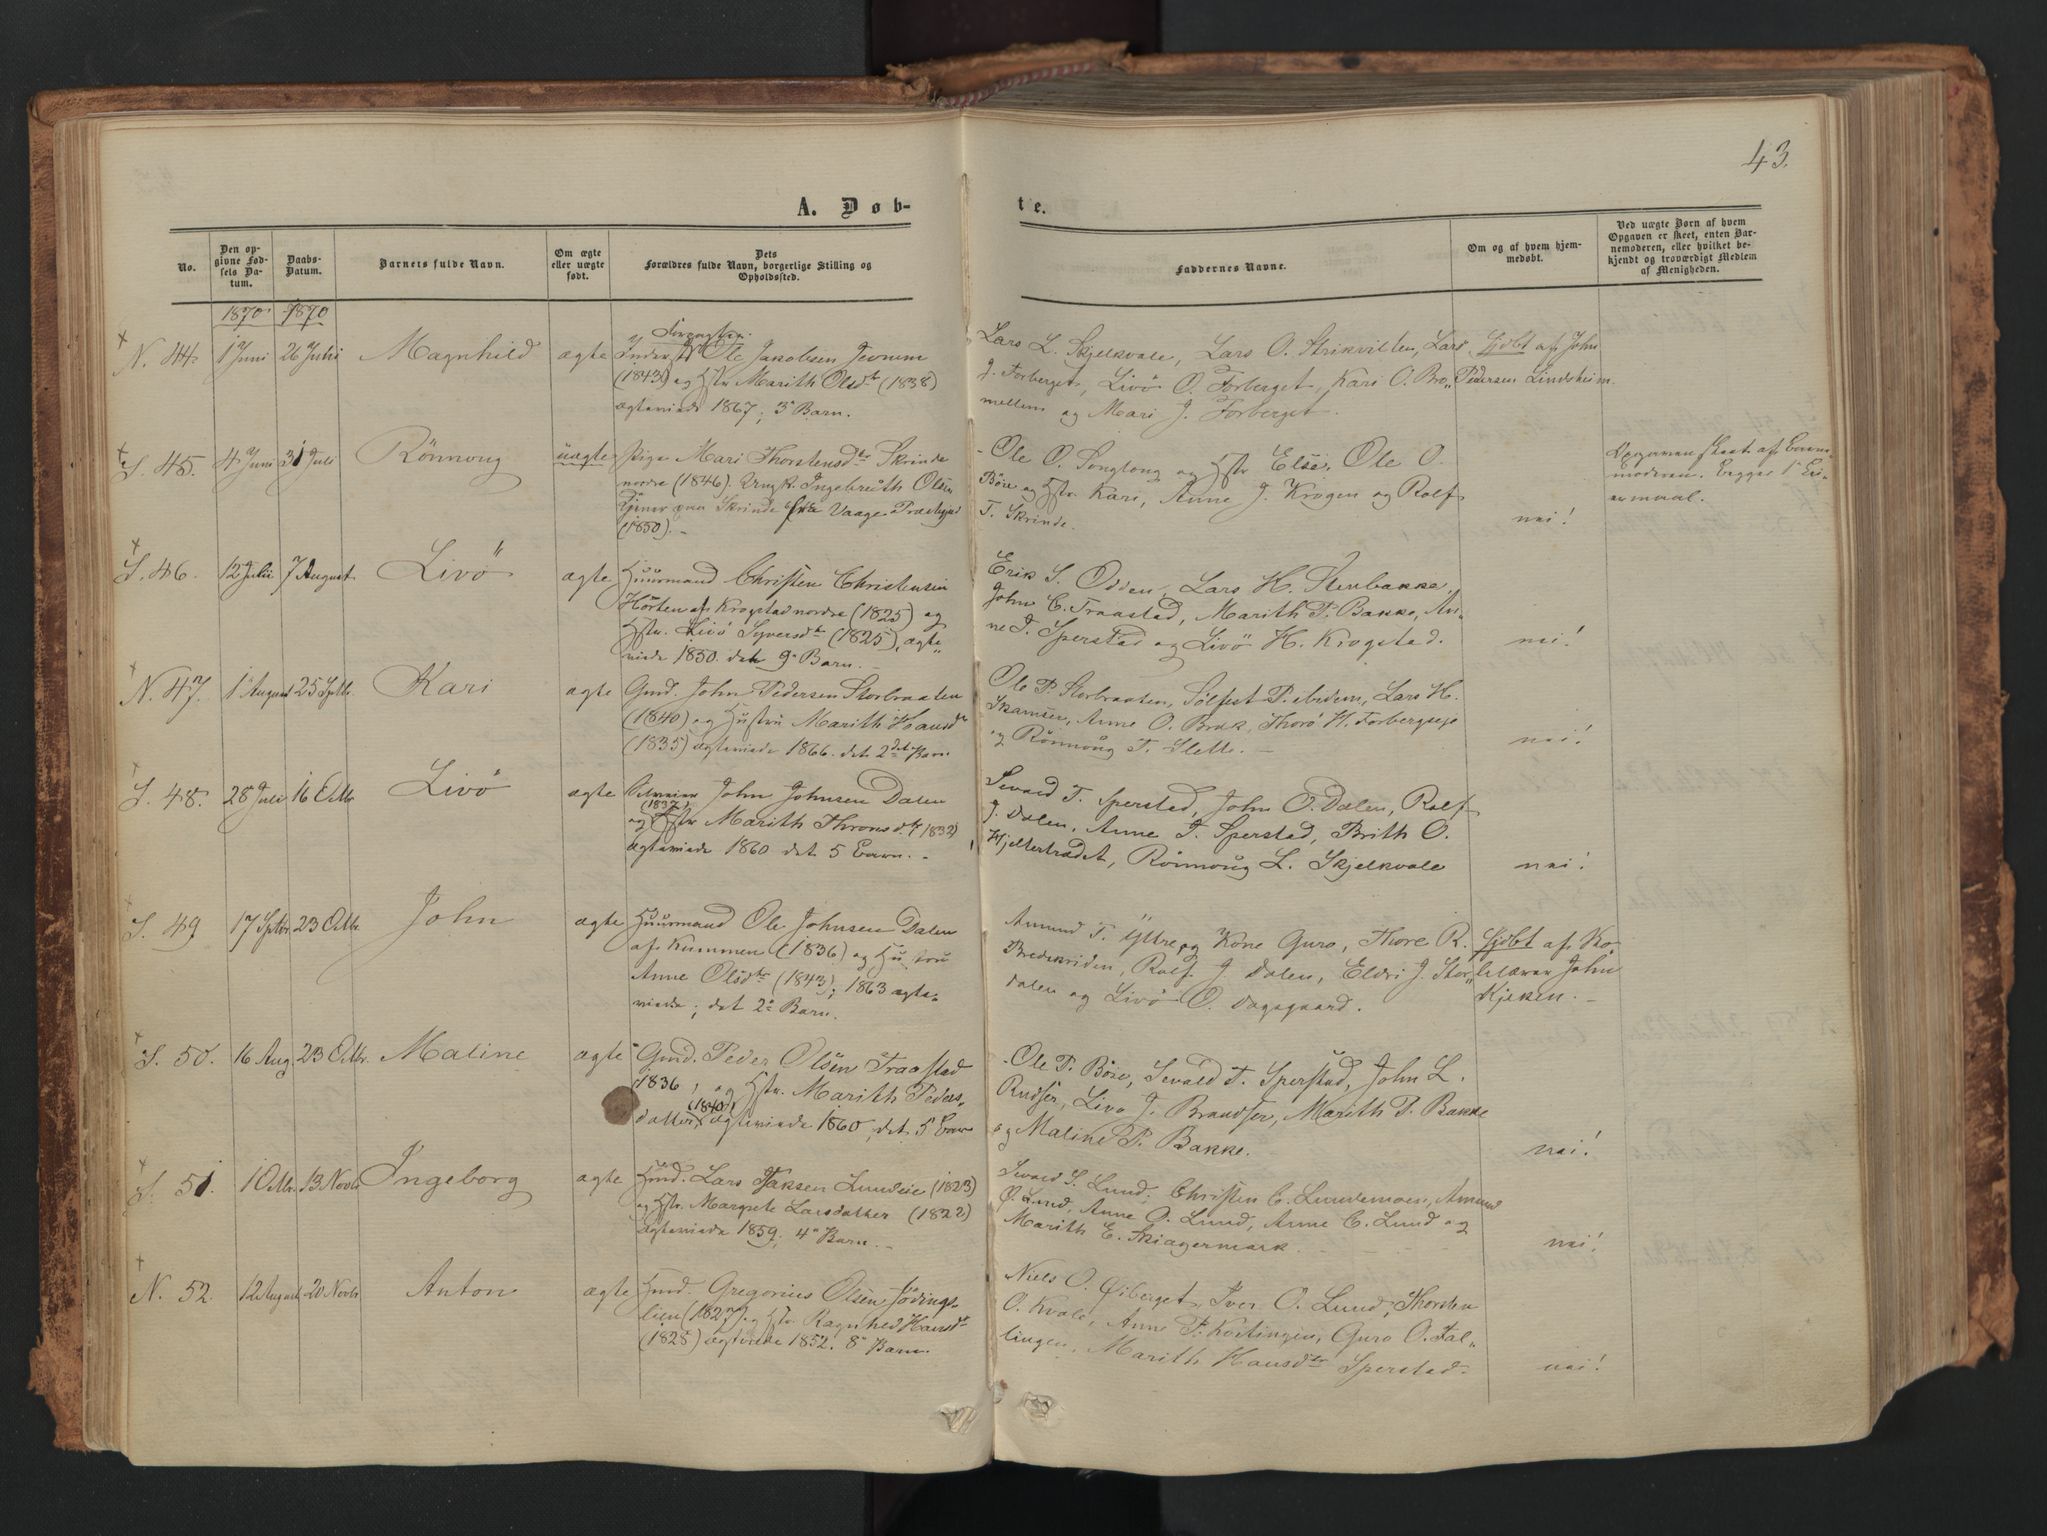 43.
A. Døb-
te.
No.
Den op-
givne Fød-
sels Da-
tum.
Daabs-
Datum.
Barnets fulde Navn.
Om ægte
eller uægte
født.
Dets
Forældres fulde Navn, borgerlige Stilling og
Opholdssted.
Faddernes Navne.
Om og af hvem hjem-
medøbt.
Ved uægte Børn af hvem
Opgaven er skeet, enten Bar-
nemoderen, eller hvilket be-
kjendt og troværdigt Medlem
af Menigheden.
1870 1870
N. 44. 1 Juni 26 Juli Magnhild ægte
Ole Jakobsen
(1843) og Hstr. Marith Olsdtr (1838)
ægteviede 1867; 3 Barn.
Lars L. Skjelkvale, Lars O. Strikvilten, Lars
J. Forberget, Livö O. Forberget, Kari O. Bro-
mellem og Mari J. Forberget.
Hjdbt af John
Pedersen Lindsheim.
S. 45. 4 Juni 31 Juli Rönnoug uægte
Pige Mari Thorstensdtr Skrinde
nordre (1846). Ungk. Ingebreth Olsen
Tjener paa Skrinde fra Vaage Præstegjd
(1850). -
Ole O. Songlong og Hstr. Else, Ole O.
Böie og Hstr. Kari, Anne J. Krogen og Rolf
T. Skrinde.
nei!
Opgaven skeet af Barne-
moderen. begges 1ste Lei-
ermaal.
S. 46. 12 Juli 7 August Livö ægte
Huurmand Christen Christensen
Hörten af Krogstad nordre (1825) og
Hstr. Livö Syversdtr (1825), ægte-
viede 1850. det 9 Barn. -
Erik S. Odden, Lars H. Stenbakke,
John C. Traastad, Marith P. Bakke, An-
ne T. Sperstad og Livö H. Krogstad.
nei!
N. 47. 1 August 25 Sptbr. Kari ægte
Gmd. John Pedersen Storbraaten
(1840) og Hustru Marith Hansdtr
(1835) ægteviede 1866. det 2det Barn.
Ole P. Storbraaten, Sölfest P. , Lars H.
Skamser, Anne O. Bræk, Thorö H. Forbergseje
og Rönnoug T. Slette. -
nei!
S. 48. 28 Juli 16 Octbr. Livö ægte
Selveier John Johnsen Dalen
(1837)
og Hstr. Marith Thronsdtr (1832)
ægteviede 1860 det 5 Barn. -
Sevald T. Sperstad, John O. Dalen, Rolf
J. Dalen, Anne T. Sperstad, Brith O.
Hjeltertrædet, Rönnoug L. Skjelkvale
nei!
S. 49 17 Sptbr. 23 Octbr. John ægte
Huurmand Ole Johnsen Dalen
af Kummen (1836) og Hustru
Anne Olsdtr (1843); 1863 ægte-
viede; det 2 Barn.
Amund T. Yttre og Kone Guro, Thore R.
Bredesviden, Rolf J. Dalen, Eldri J. Stor-
dalen og Livö O. Dagsgaard.
Hjdbt af Ko-
John
Kjeken. -
S. 50. 16 Aug 23 Octbr. Maline ægte
Gmd. Peder Olsen Traastad
1836, og Hstr. Marith Peders-
(1840)
datter, ægteviede 1860, det 5 Barn
Ole P. Böie, Sevald T. Sperstad, John L.
Rudser, Livö J. Brandser, Marith P. Bakke
og Maline P. Bakke.
nei!
S. 51. 1 Octbr. 13 Novbr Ingeborg ægte
Hmd. Lars Lundeie (1823)
og Hstr. Margrete Larsdatter (1822)
ægteviede 1859; 4 Barn. -
Sevald S. Lund, Christen C. Lundemoen, Amund
O. Lund, Anne O. Lund, Anne C. Lund og
Marith E. Skjagermark.
nei!
N. 52. 12 August 20 Novbr Anton ægte
Hmd. Gregorius Olsen Jödings-
lien (1827) og Hstr. Ragnhild Hansdtr
(1828) ægteviede 1852. 8 Barn.
Niels O. Öiberget, Iver O. Lund, Thorsten
O. Kvale, Anne P. Kortingen, Guro O. Tal-
lingen, Marith Hansdtr Sperstad.
nei!